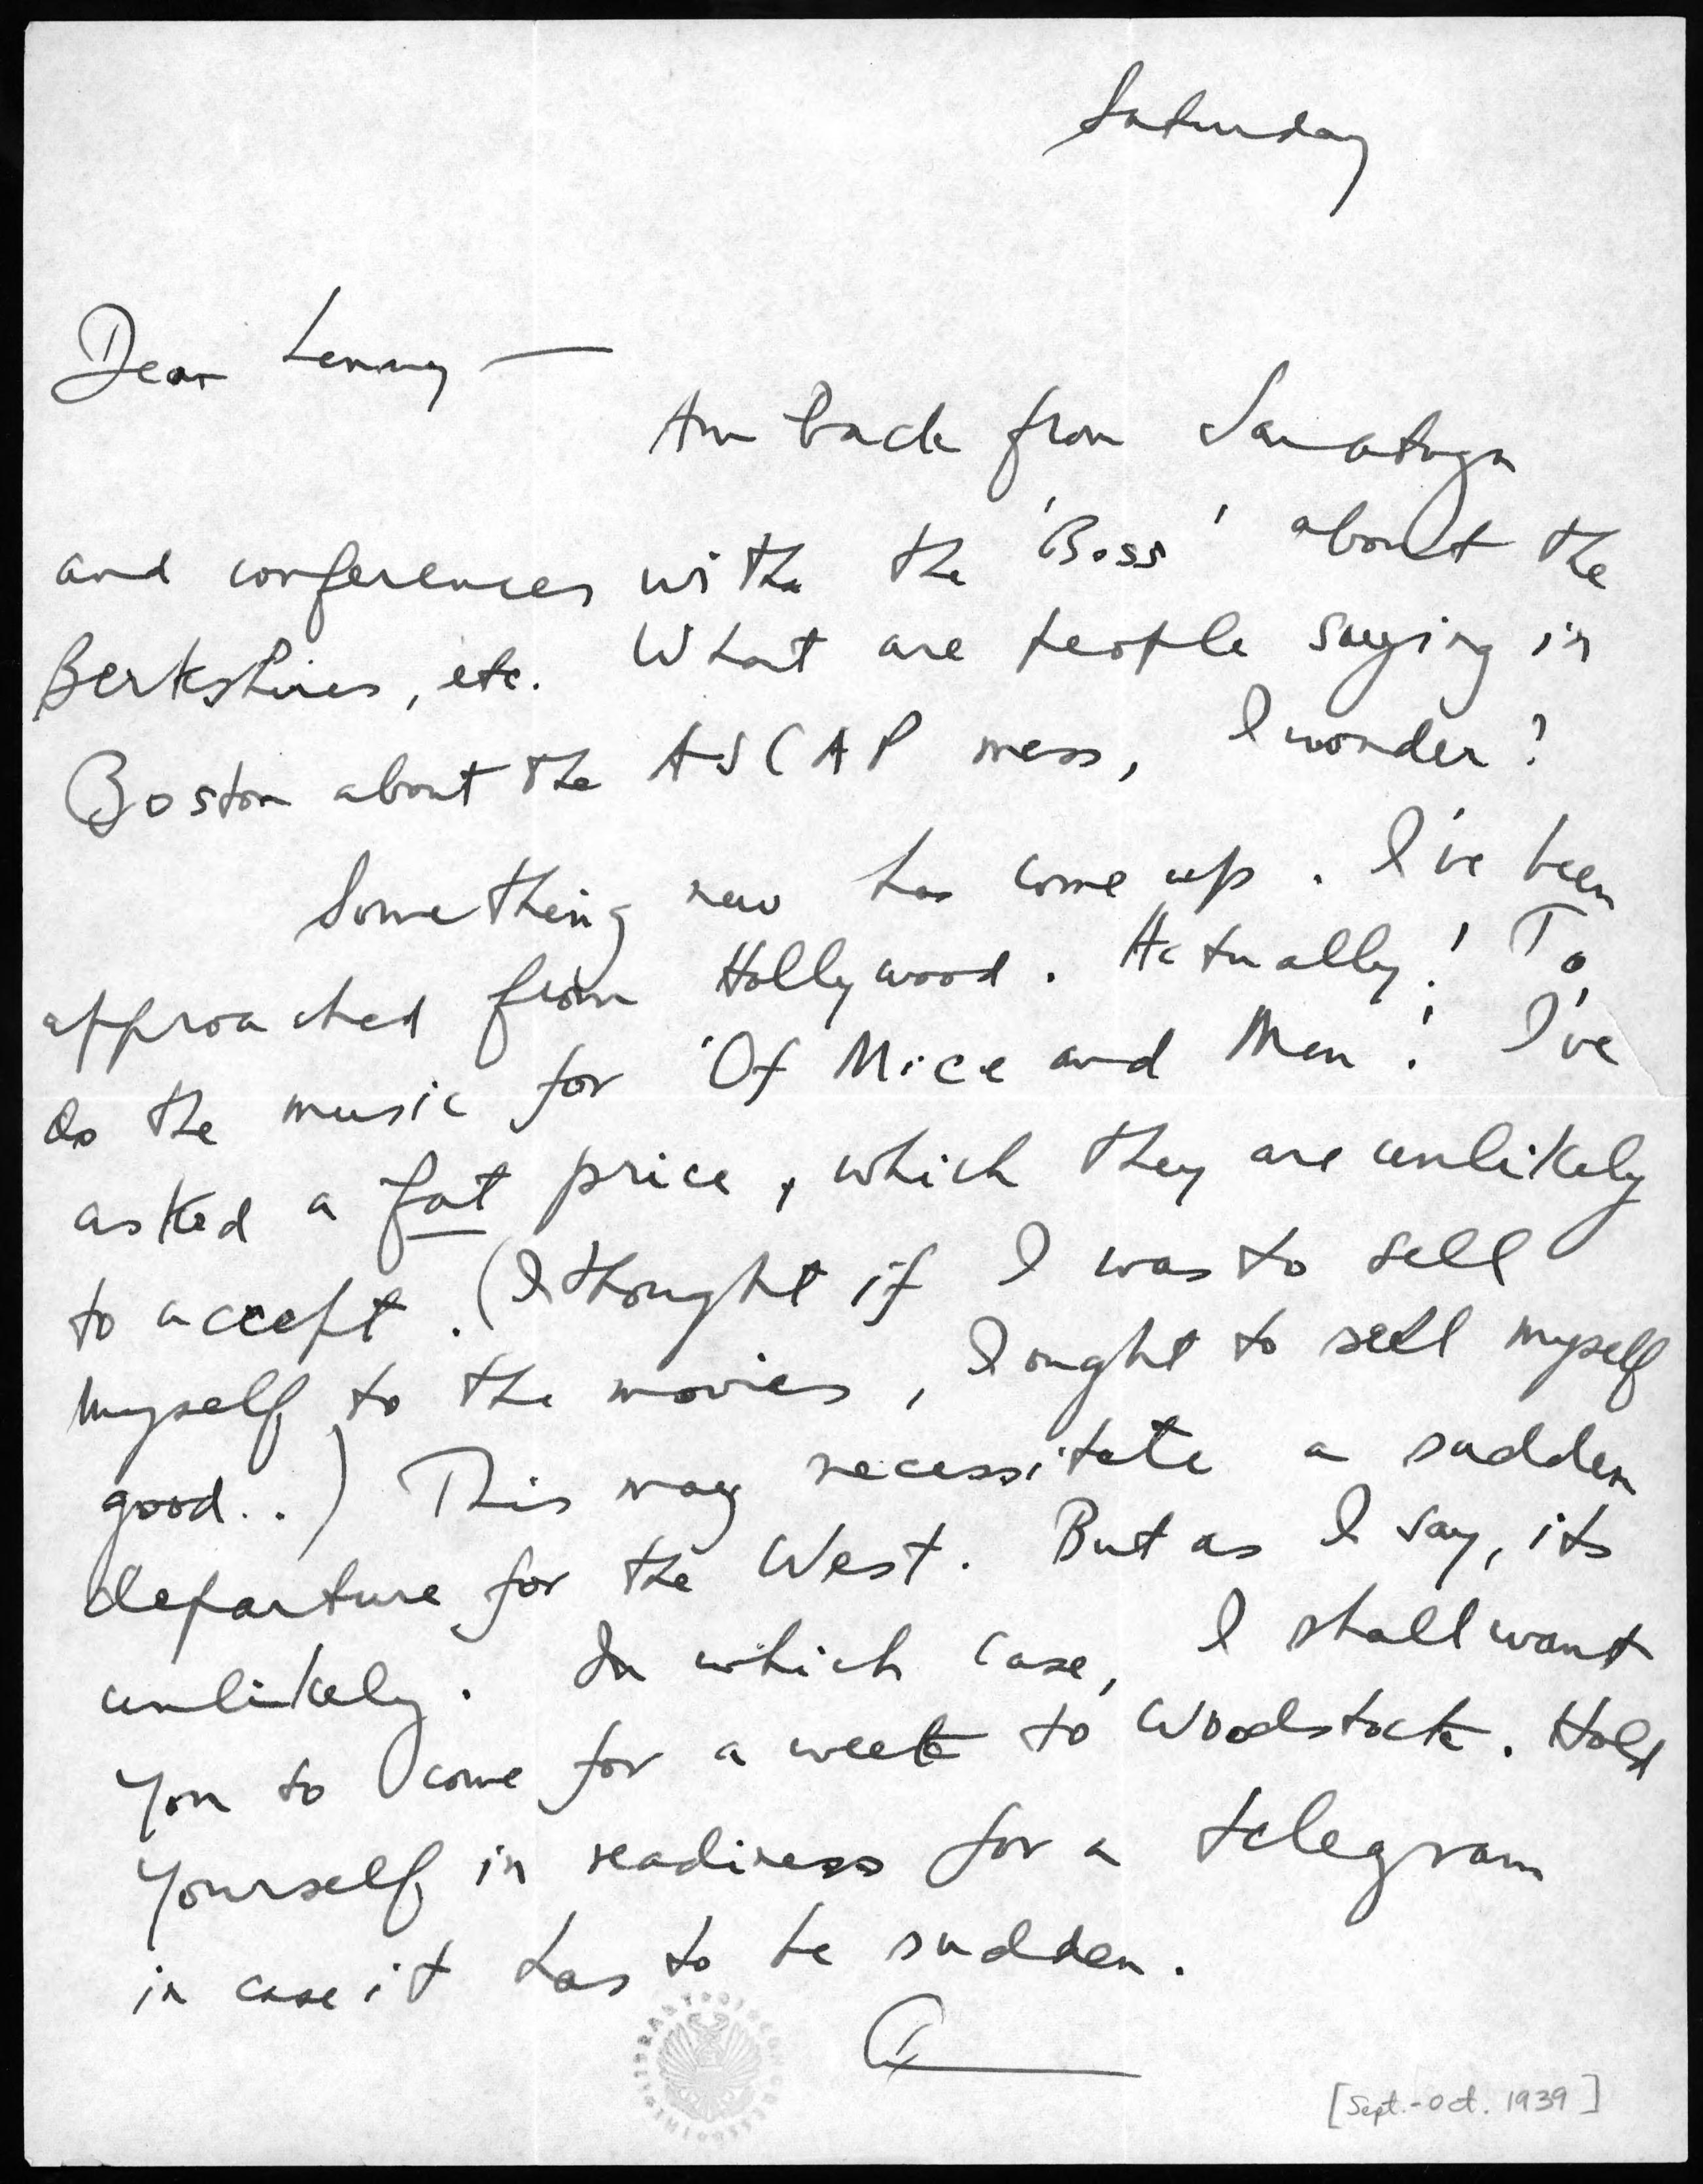 Saturday
Dear Lenny —
Am back from Saratoga
and conferences with the 'Boss' about the
Berkshires, etc. What are people saying in
Boston about the ASCAP mess, I wonder?
Something new has come up. I've been
approached from Hollywood. Actually! To
do the music for 'Of Mice and Men'! I've
asked a fat price, which they are unlikely
to accept. (I thought if I was to sell
myself to the movies, I ought to sell myself
good..) This may necessitate a sudden
departure for the West. But as I say, its
unlikely. In which case, I shall want
you to come for a week to Woodstock. Hold
yourself in readiness for a telegram
in case it has to be sudden.
A
[Sept.-Oct. 1939]